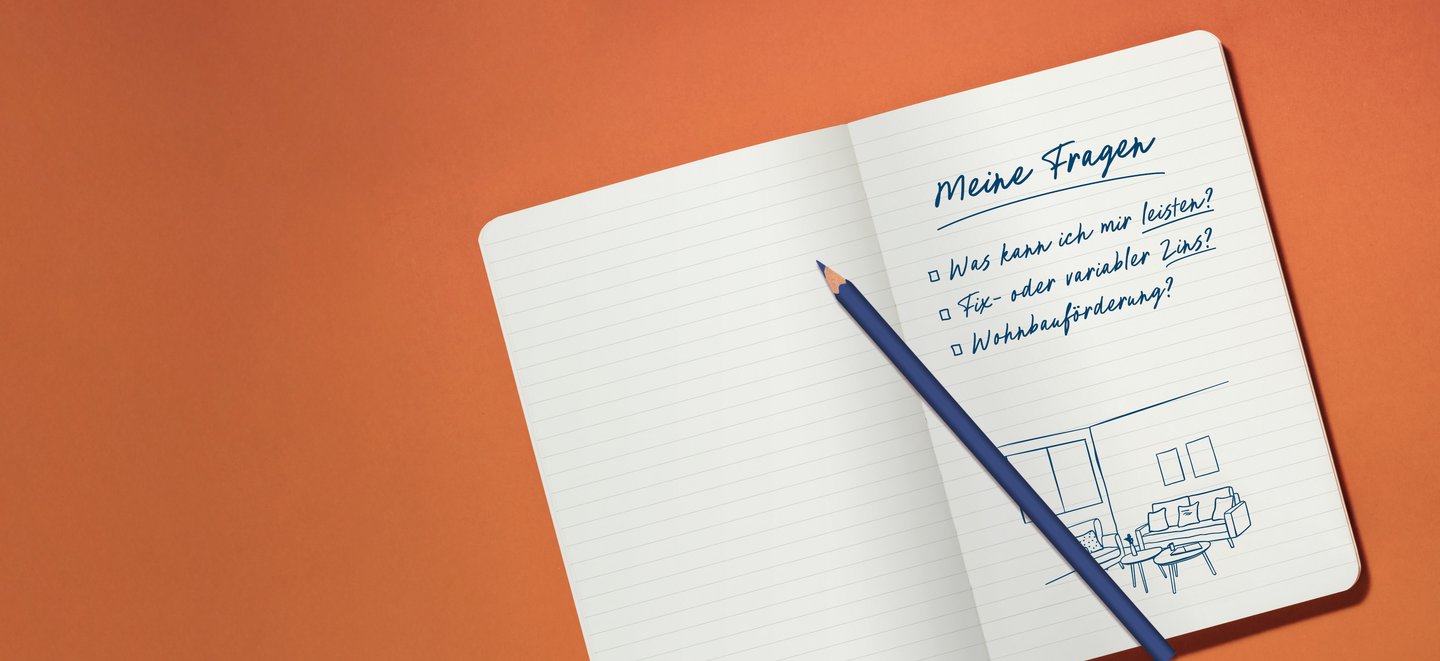 Meine Fragen
Was kann ich mir leisten?
Fix- oder variabler Zins?
Wohnbauförderung?